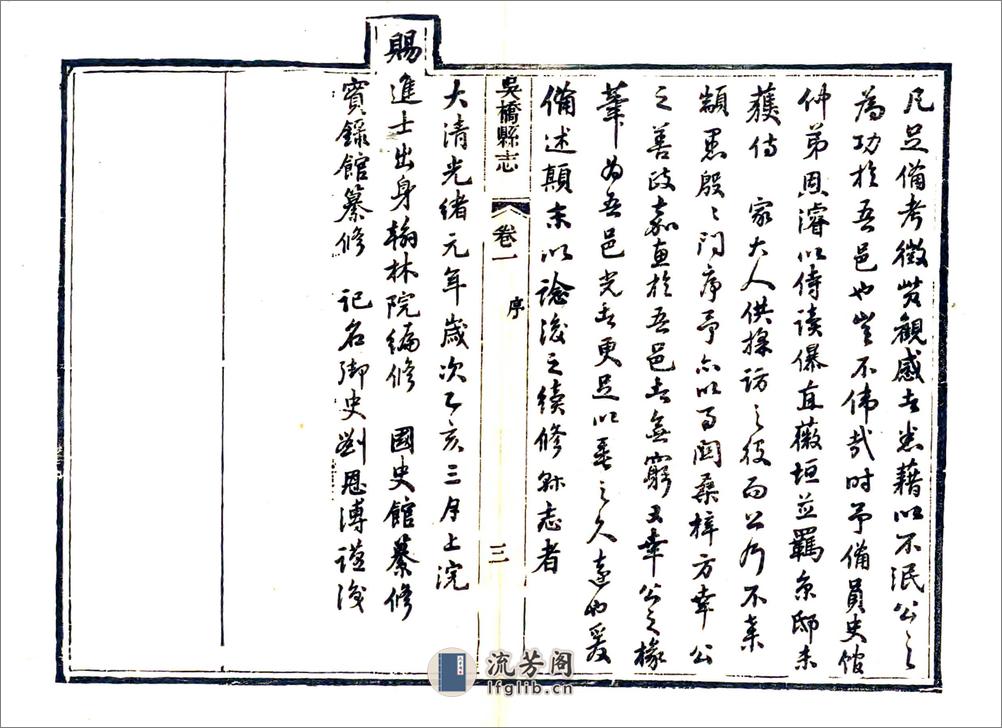 凡足備考徵資觀感者悉藉以不泯公之
為功於吾邑也豈不偉哉時予備員史館
仲弟恩濬以侍读儤直薇垣並羈京邸未
獲侍 家大人供採訪之役而公乃不棄
顓愚殷〻問序予亦以事關桑梓方幸公
之善政嘉惠於吾邑者無窮又幸公之椽
筆为吾邑光者更足以垂之久遠也爰
備述顛末以諗後之續修縣志者
吳橋縣志 卷一 序 三
大清光緒元年歲次乙亥三月上浣
賜進士出身翰林院編修 國史館纂修
實錄館纂修 記名御史劉恩溥謹識
流芳阁
lfglib.cn